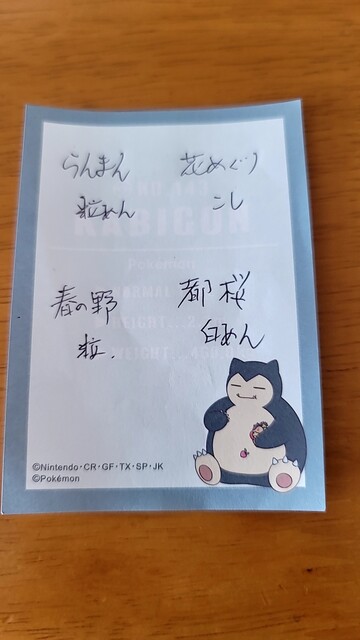 らんまん
粒あん
花めぐり
こし
春の野
粒.
都桜
白あん
KABIGON
Pokémon
©Nintendo・CR・GF・TX・SP・JK
©Pokémon